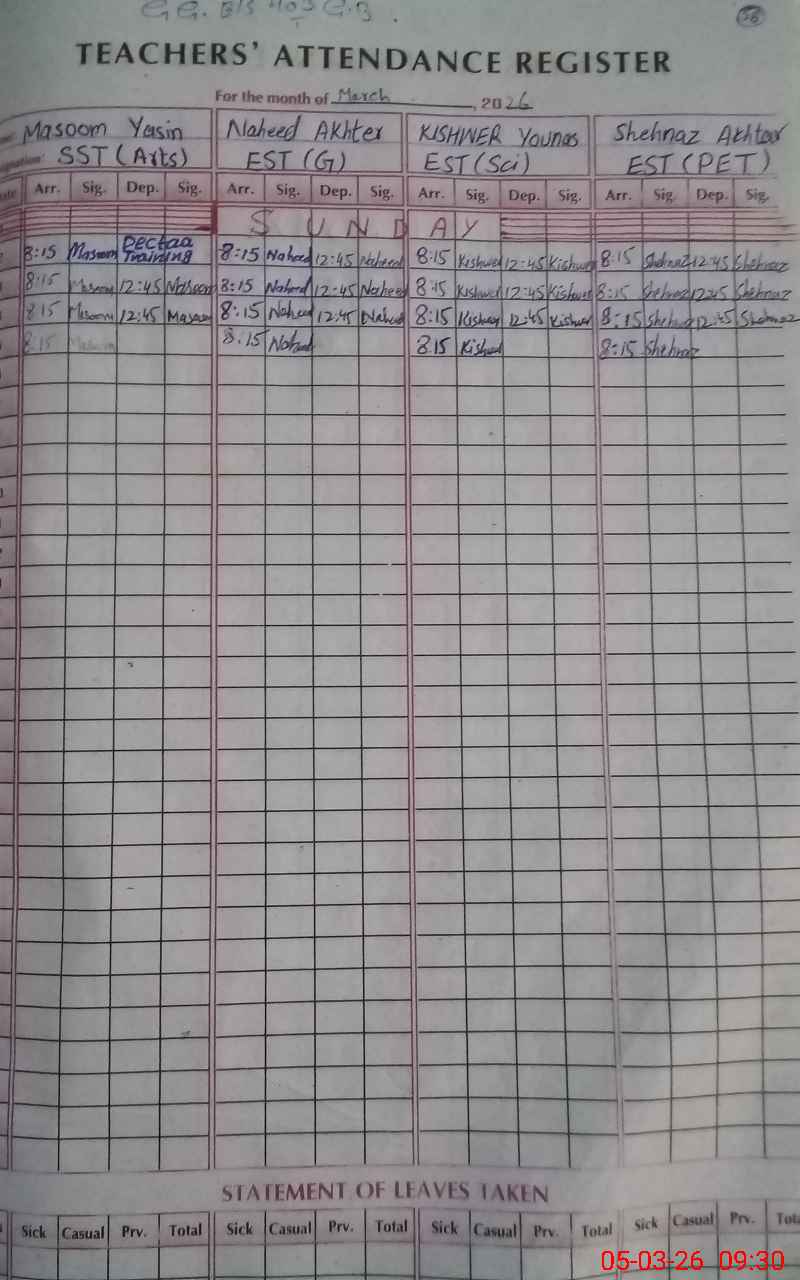 G.G. E/S 403 G.B.
38
TEACHERS' ATTENDANCE REGISTER
For the month of March, 2026
Masoom Yasin Naheed Akhter KISHWER Younas Shehnaz Akhtar
SST (Arts) EST (G) EST (Sci) EST (PET)
Arr. Sig. Dep. Sig. Arr. Sig. Dep. Sig. Arr. Sig. Dep. Sig. Arr. Sig. Dep. Sig.
SUNDAY
8:15 Masoom Training 8:15 Naheed 12:45 Naheed 8:15 Kishwer 12:45 Kishwer 8:15 Shehnaz 12:45 Shehnaz
8:15 Masoom 12:45 Masoom 8:15 Naheed 12:45 Naheed 8:15 Kishwer 12:45 Kishwer 8:15 Shehnaz 12:45 Shehnaz
8:15 Masoom 12:45 Masoom 8:15 Naheed 12:45 Naheed 8:15 Kishwer 12:45 Kishwer 8:15 Shehnaz 12:45 Shehnaz
8:15 Masoom 8:15 Naheed 8:15 Kishwer 8:15 Shehnaz
STATEMENT OF LEAVES TAKEN
Sick Casual Prv. Total Sick Casual Prv. Total Sick Casual Prv. Total Sick Casual Prv.
05-03-26 09:30